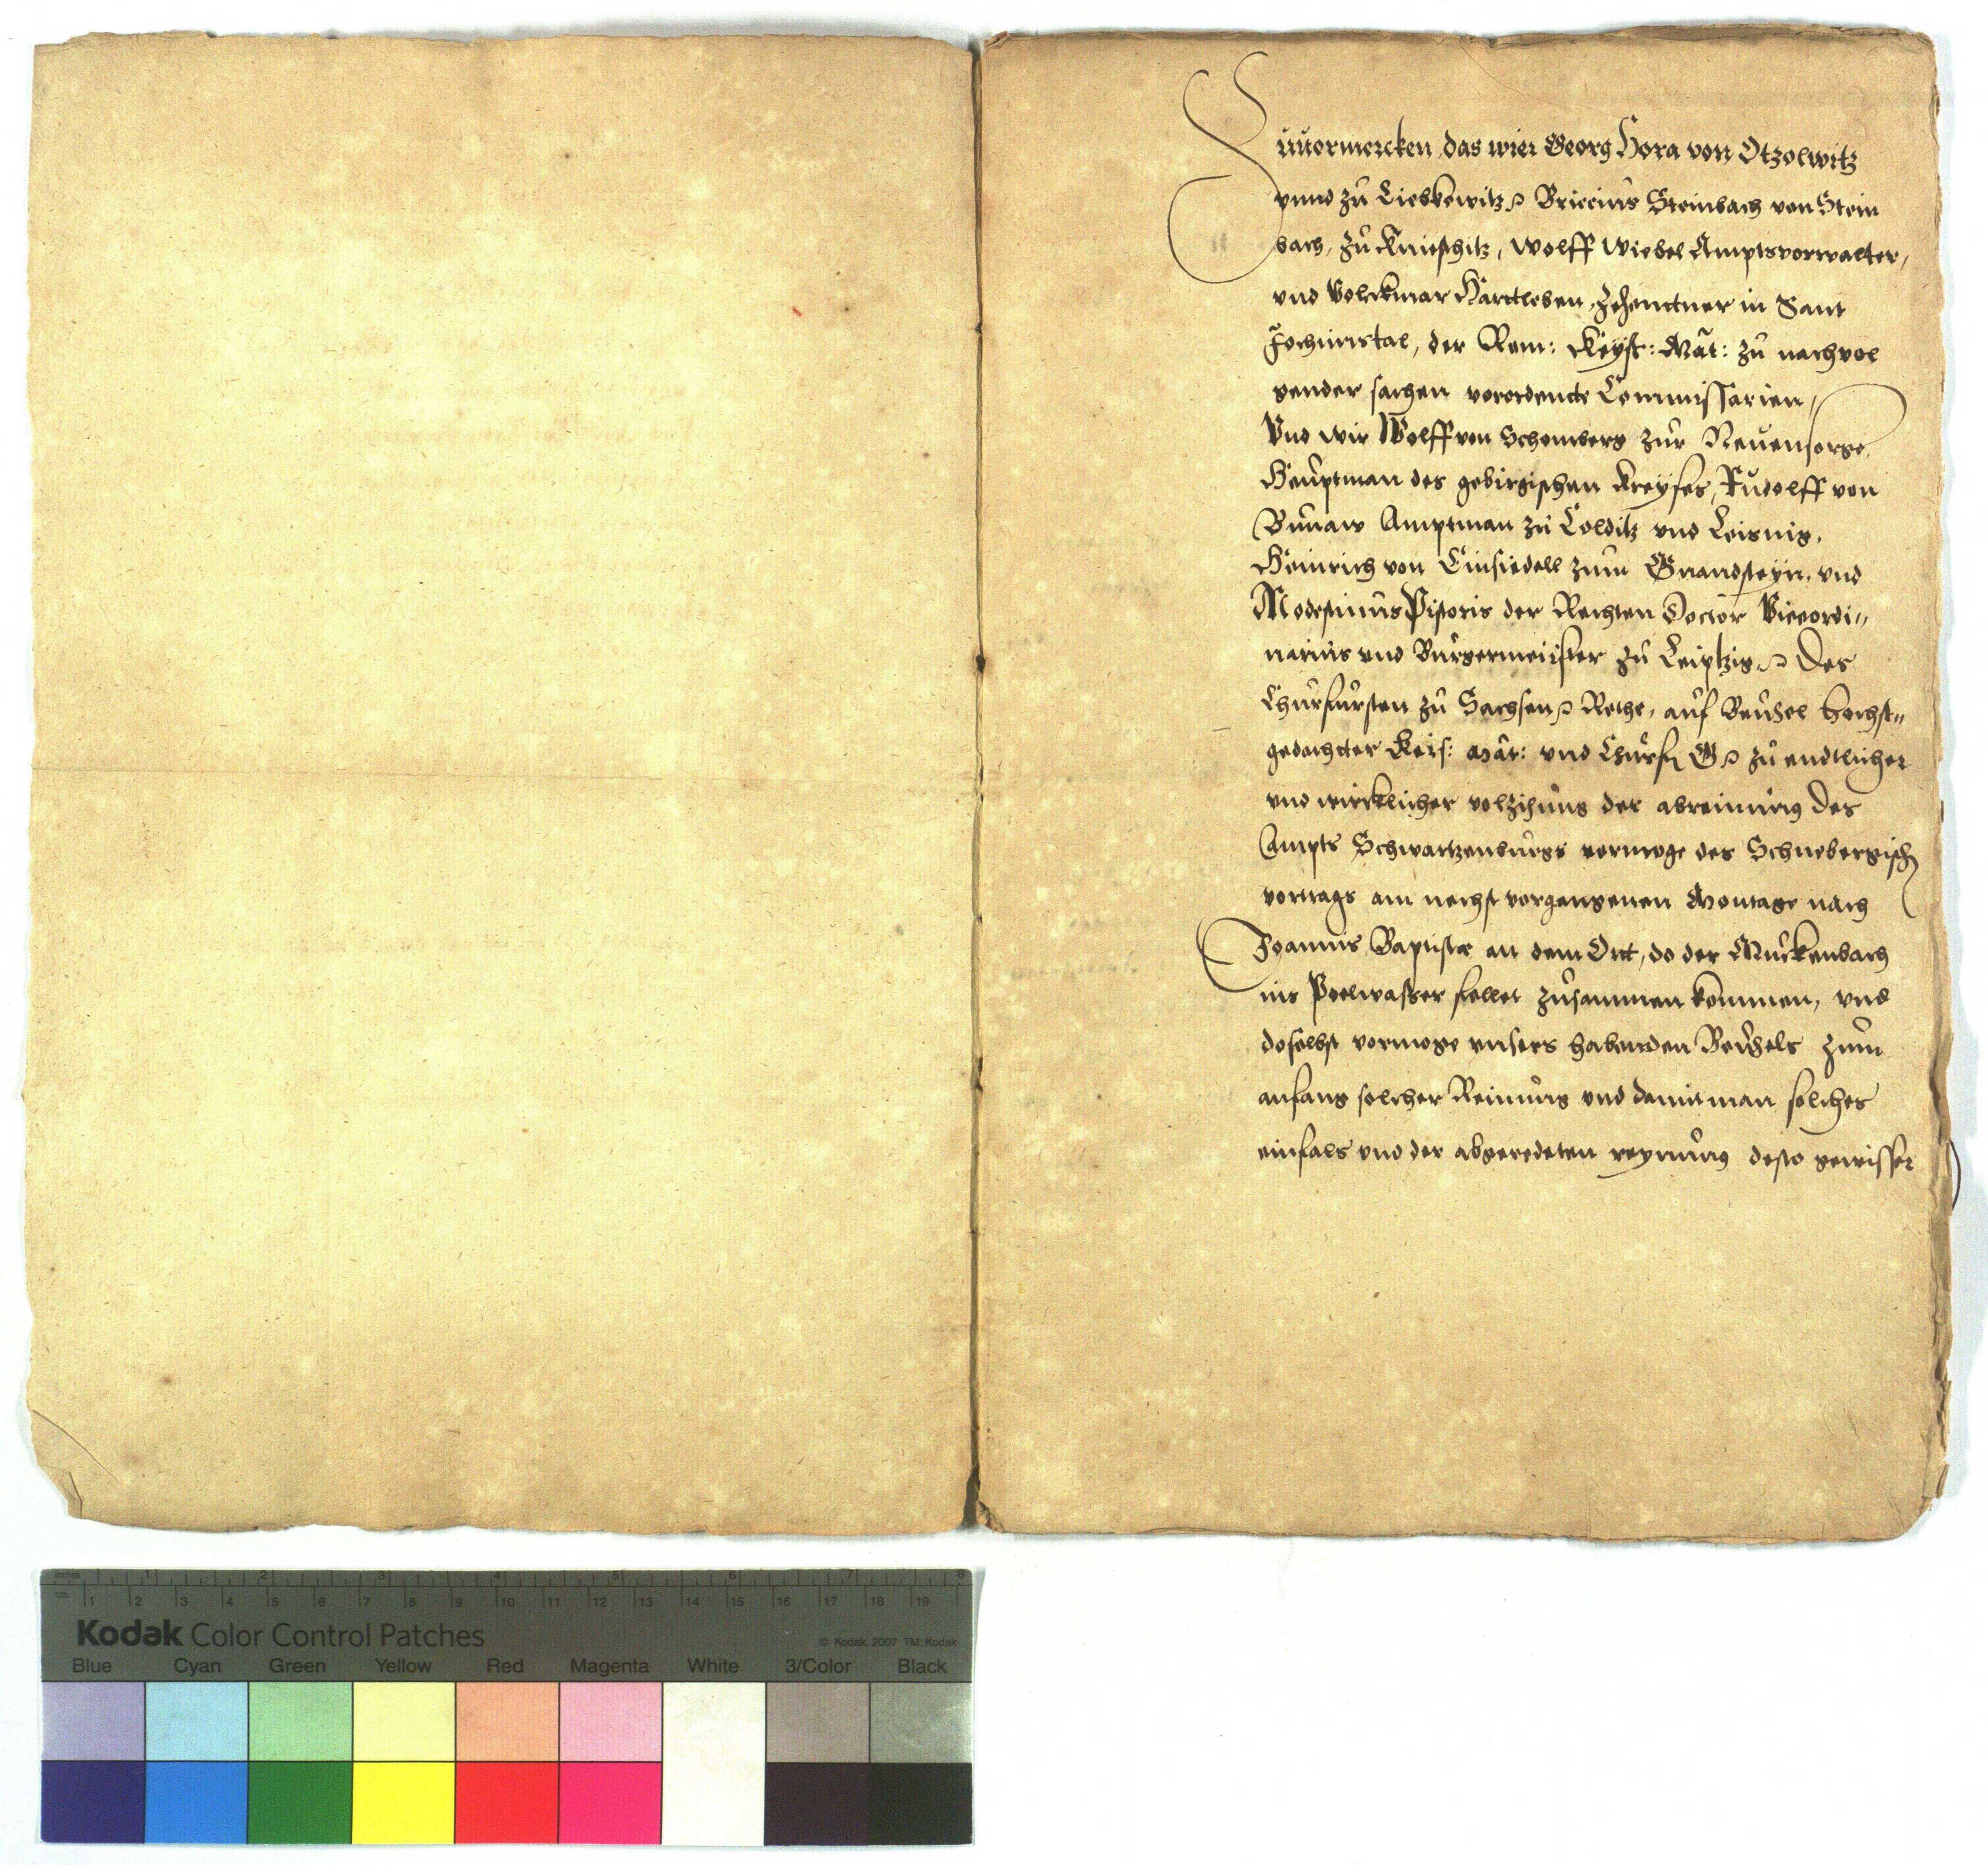 Zuuormercken das wier Georg Hora von Otzolwitz
vnnd zu Liebkowitz Briccius Steinbach von Stein
bach, zu Knieschitz, Wolff Wiebel Amptsvorwalter,
vnd Volckmar Hartleben, Zehenttner in Sant
Jochimstal, der Rom: Keyss: Mat: zu nachvol
gender sachen vorordente Commissarien,
Vnd wir Wolff von Schomberg zur Neuensorge
Heuptman des gebirgischen Kreyses, Rudolff von
Bunaw Amptman zu Colditz vnd Leisnig,
Heinrich von Einsiedell zum Gnandsteyn, vnd
Modestinus Pistoris der Rechten Doctor Viceordi„
narius vnd Burgermeiister zu Leiptzig, Des
Churfursten zu Sachsen Rethe, auf Beuhel hochst„
gedachter Keis: Mat: vnd Churf G zu endtlicher
vnd wircklicher volzihung der abreinung des
Ampts Schwartzenburgk vormoge des Schnebergisch
vortrags am nechst vorgangenen Montage nach
Joannis Baptistæ an dem Ort, do der Muckenbach
ins Poelwasser fellet zusammen kommen, vnd
doselbst vormoge vnsers habenden Beuhels zum
anfang solcher Reinung vnd damit man solches
einfals vnd der abgeredeten reynung desto gewisser
inches 1 2 3 4 5 6 7 8
cm 1 2 3 4 5 6 7 8 9 10 11 12 13 14 15 16 17 18 19
Kodak Color Control Patches
© Kodak, 2007 TM: Kodak
Blue Cyan Green Yellow Red Magenta White 3/Color Black